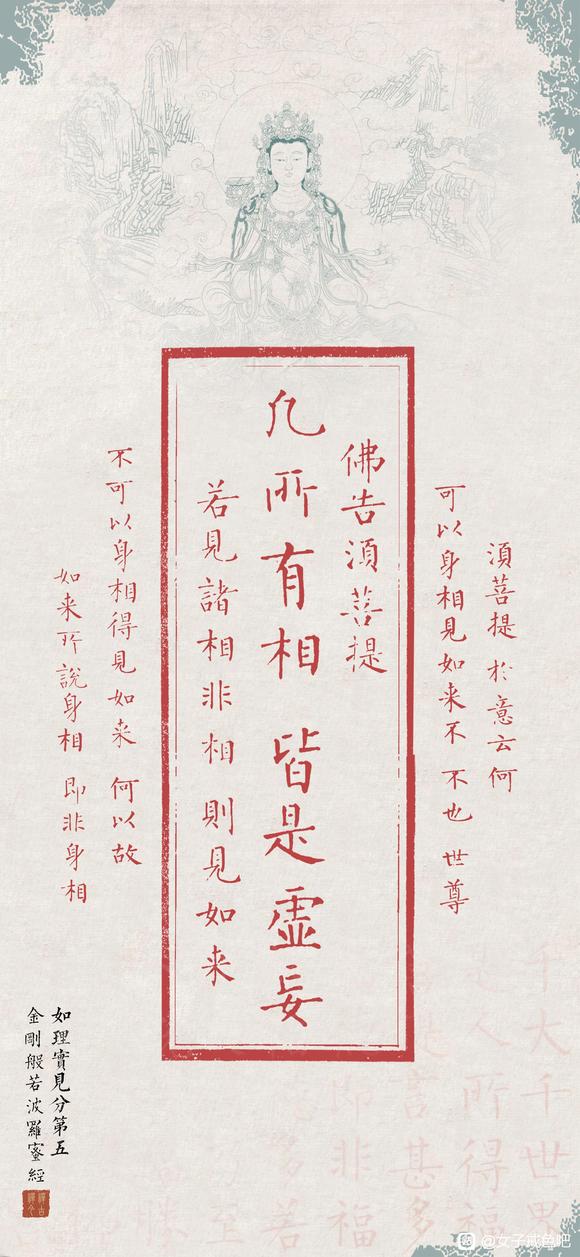 須菩提 於意云何
可以身相見如来不 不也 世尊
佛告須菩提
凡所有相 皆是虛妄
若見諸相非相 則見如来
不可以身相得見如来 何以故
如来所說身相 即非身相
如理實見分第五
金剛般若波羅蜜經
千大千世界
人所得福
言甚多
即非福
@女子戒色吧